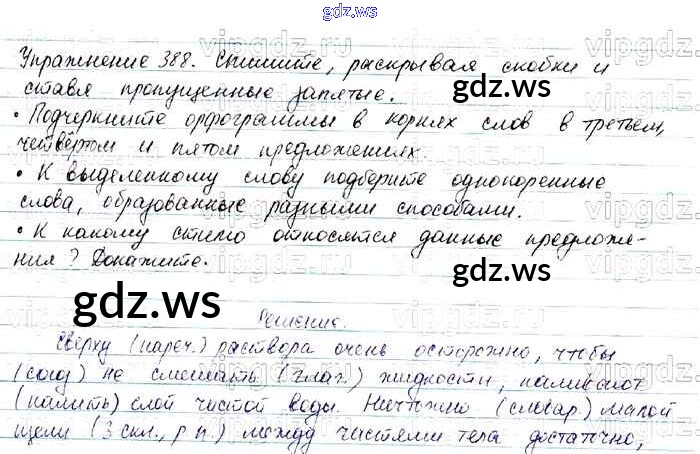 gdz.ws
Упражнение 388. Спишите, раскрывая скобки и
ставя пропущенные запятые.
gdz.ws
• Подчеркните орфограммы в корнях слов в третьем,
четвёртом и пятом предложениях.
• К выделенному слову подберите однокоренные
слова, образованные разными способами.
• К какому стилю относятся данные предложе-
ния? Докажите.
gdz.ws
gdz.ws
Решение.
Сверху (нареч.) раствора очень осторожно, чтобы
(союз) не смешать (глаг.) жидкости, наливают
(налить) слой чистой воды. Ничтожно (словар.) малой
щели (3 скл., р.п.) между частями тела достаточно,